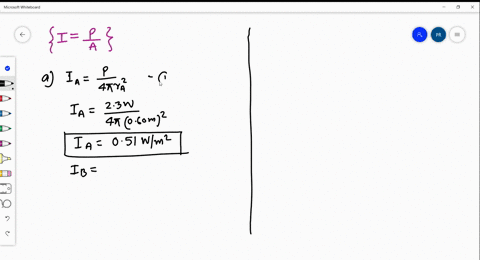 Microsoft Whiteboard
{I = P/A}
a) I_A = P/4πr_A² - (
I_A = 2.3W/4π(0.60m)²
I_A = 0.51 W/m²
I_B =